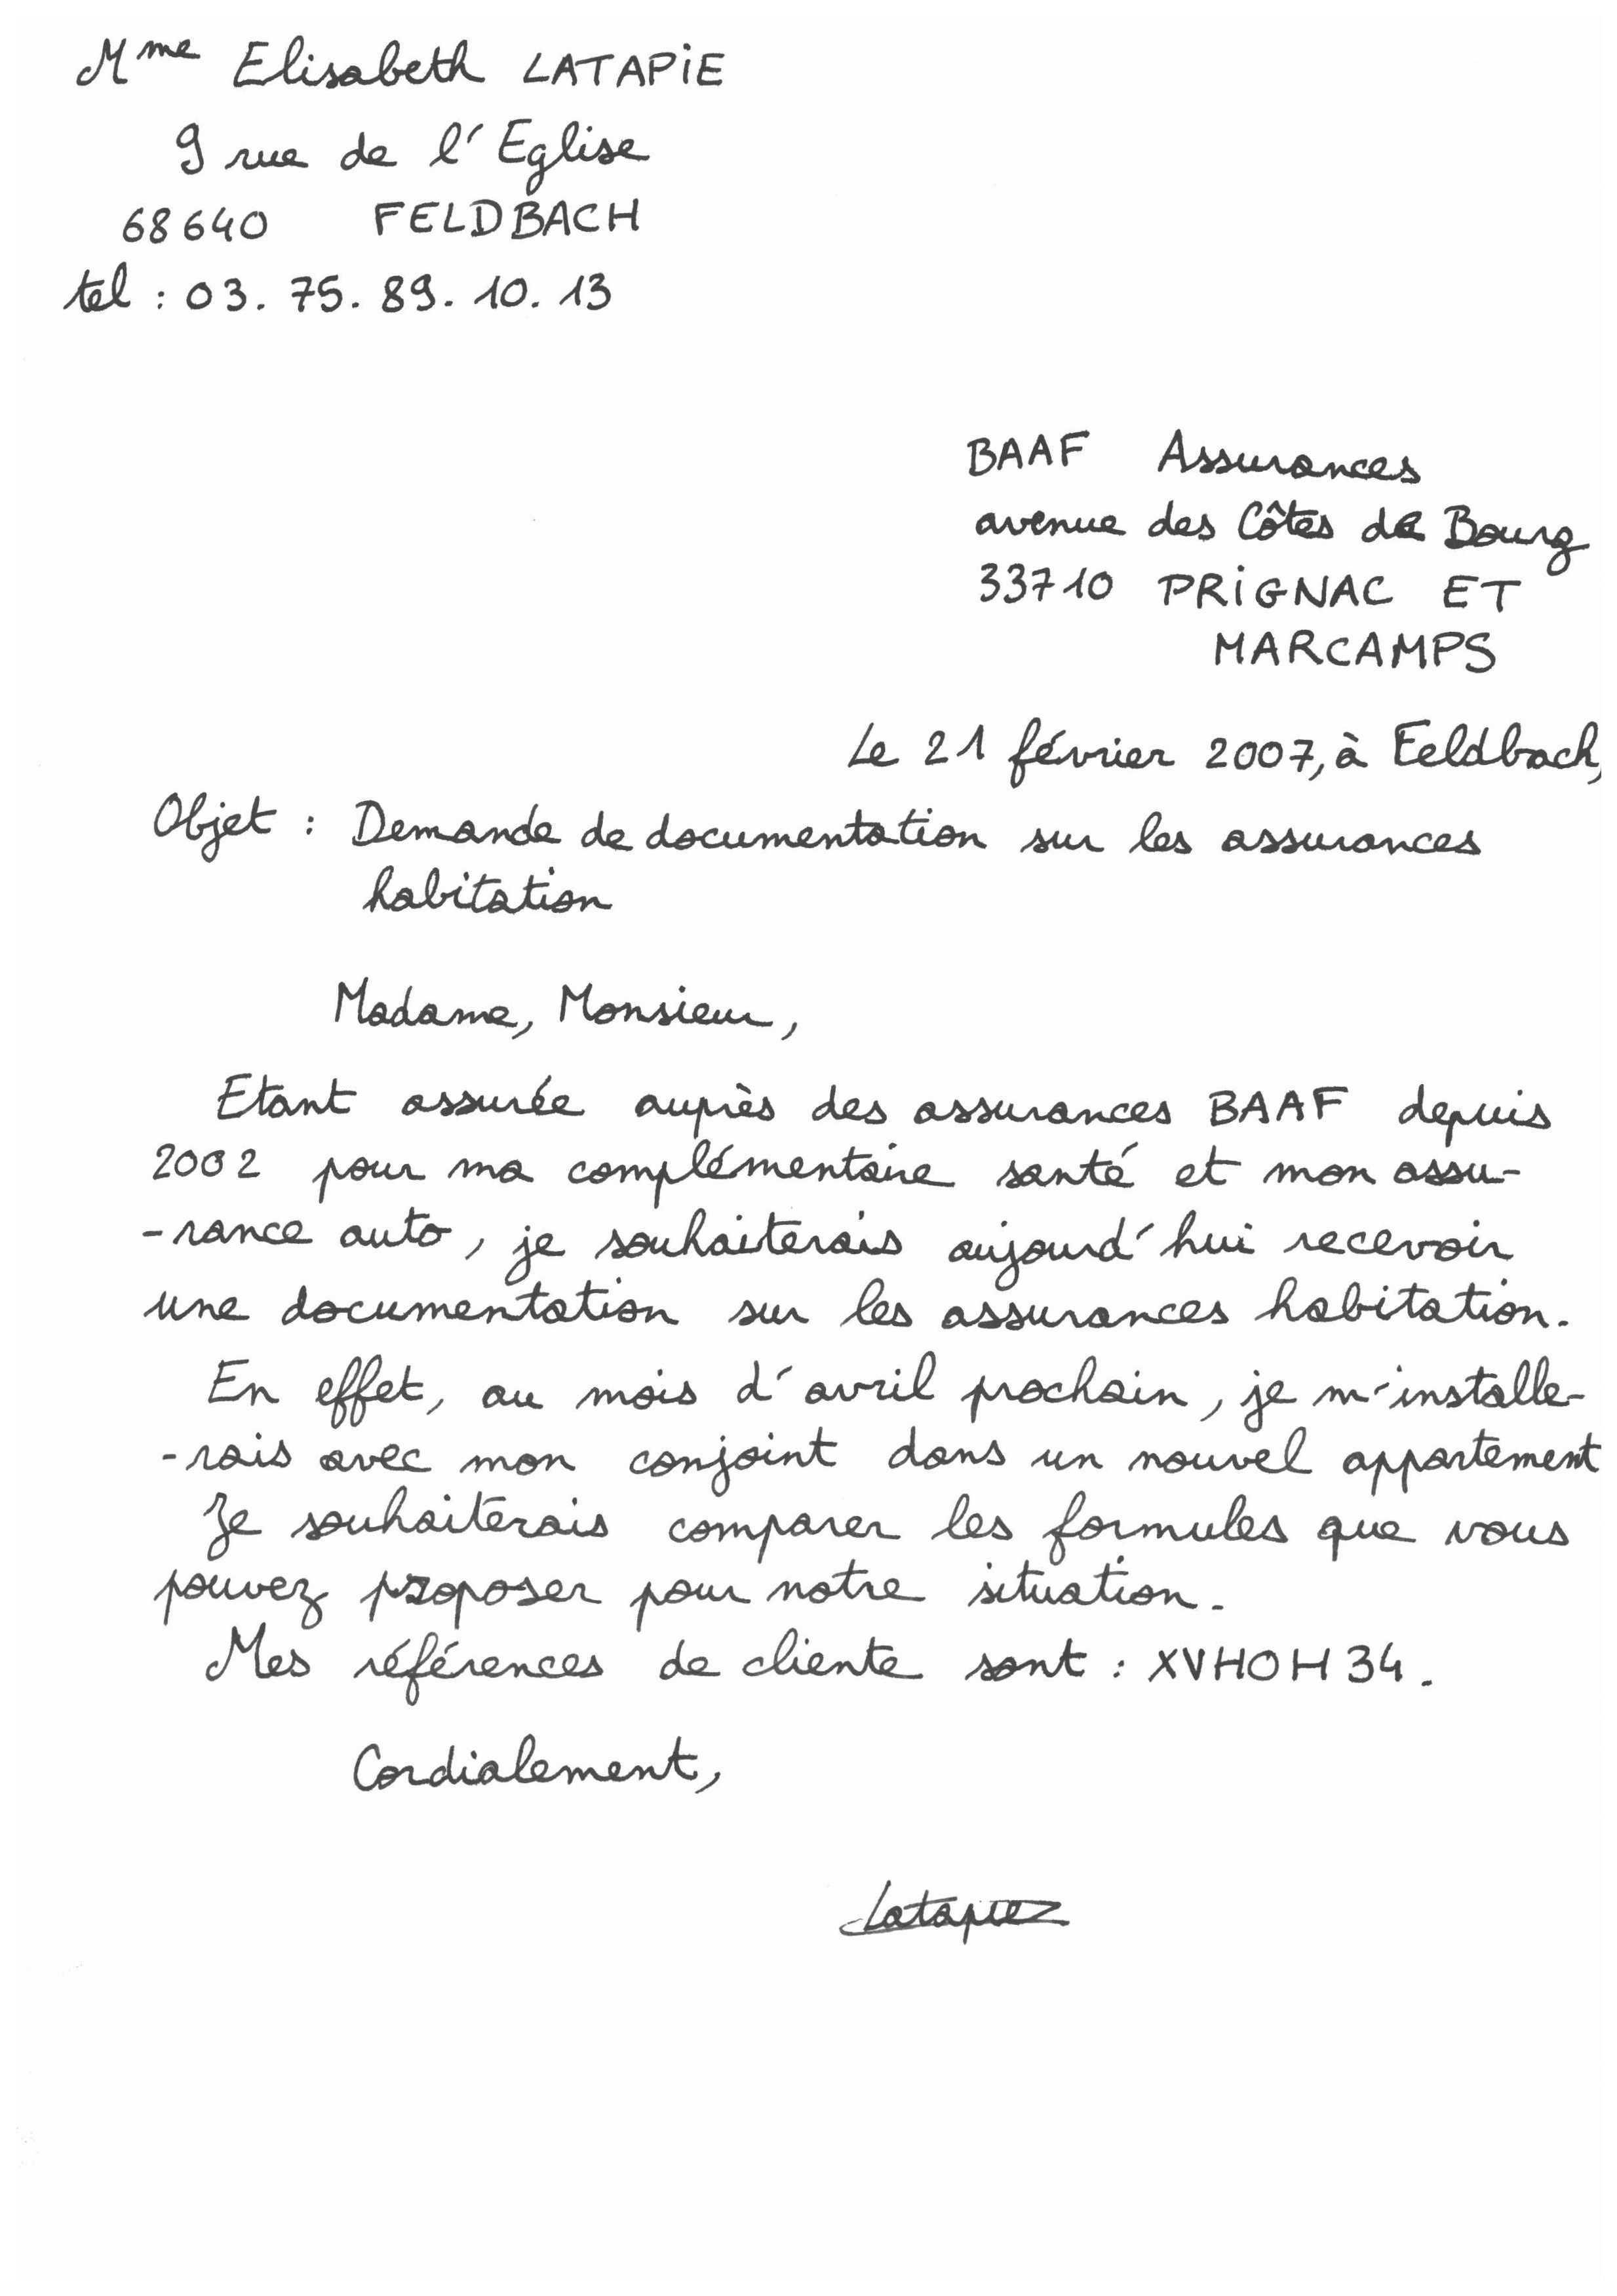 Mme Elisabeth LATAPIE
9 rue de l'Eglise
68640 FELDBACH
tel : 03. 75. 89. 10. 13
BAAF Assurances
avenue des Côtes de Bourg
33710 PRIGNAC ET
MARCAMPS
Le 21 février 2007, à Feldbach,
Objet : Demande de documentation sur les assurances
habitation
Madame, Monsieur,
Etant assurée auprès des assurances BAAF depuis
2002 pour ma complémentaire santé et mon assu-
-rance auto, je souhaiterais aujourd'hui recevoir
une documentation sur les assurances habitation.
En effet, au mois d'avril prochain, je m'installe-
-rais avec mon conjoint dans un nouvel appartement
Je souhaiterais comparer les formules que vous
pouvez proposer pour notre situation.
Mes références de cliente sont : XVHOH34.
Cordialement,
Latapie